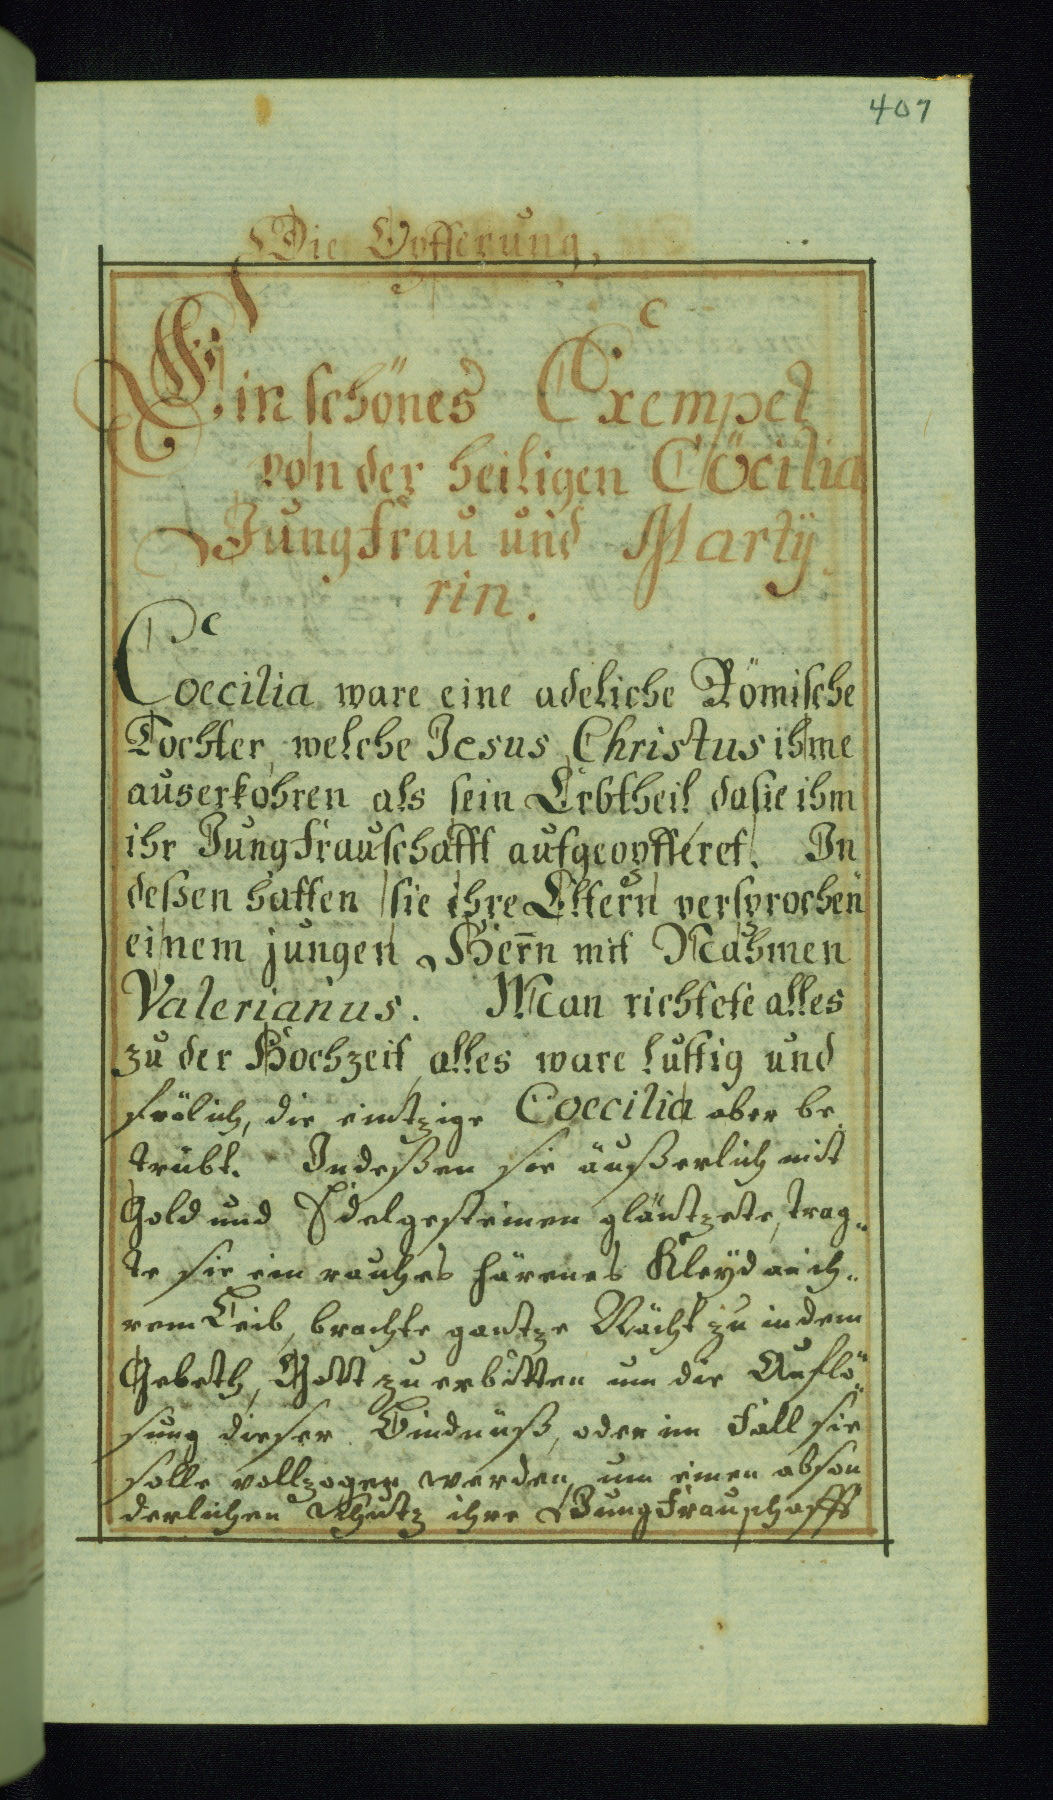 407
Die Opfferung,
Ein schönes Exempel
von der heiligen Cöcilia
Jungfrau und Martÿ
rin.
Coecilia ware eine adeliche Römische
Tochter, welche Jesus Christus ihme
auserkohren als sein Erbtheil da sie ihm
ihr Jungfrauschafft aufgeopfferet. In
deßen hatten sie ihre Eltern versprochen
einem jungen Herr̄n mit Nahmen
Valerianus. Man richtete alles
zu der Hochzeit, alles ware lustig und
frölich, die eintzige Coecilia aber be
trübt. Indeßen sie äußerlich mit
Gold und Edelgesteinen gläntzete, trag-
te sie ein rauhes härenes Kleÿd an ih-
rem Leib, brachte gantze Nächt zu in dem
Gebeth, Gott zu erbitten um die Auflö-
sung dieser Bindnüß, oder im Fall sie
solle vollzogen werden, um einen abson
derlichen Schutz ihre Jungfrauschafft